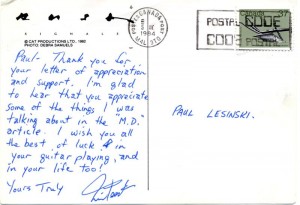 © CAT PRODUCTIONS LTD., 1982
PHOTO: DEBRA SAMUELS
Paul- Thank you for
your letter of appreciation
and support. I'm glad
to hear that you appreciate
some of the things I was
talking about in the "M.D."
article. I wish you all
the best of luck in
your guitar playing, and
in your life too!
Yours Truly
CANADA
1984
POSTAL CODE
CODE POSTAL
PAUL LESINSKI.